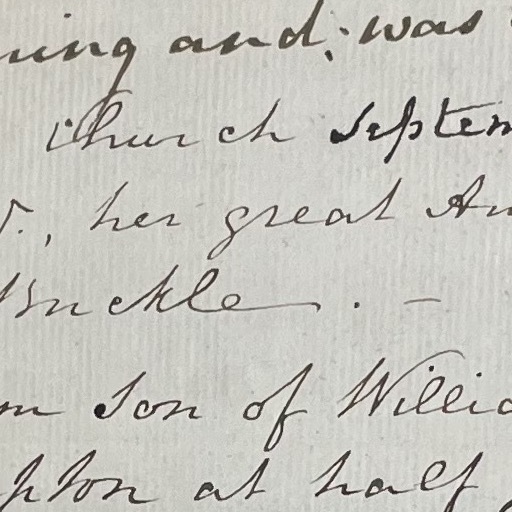 ning and, was
Church Septem
r., her great An
Buckle. —
m son of Willia
pton at half